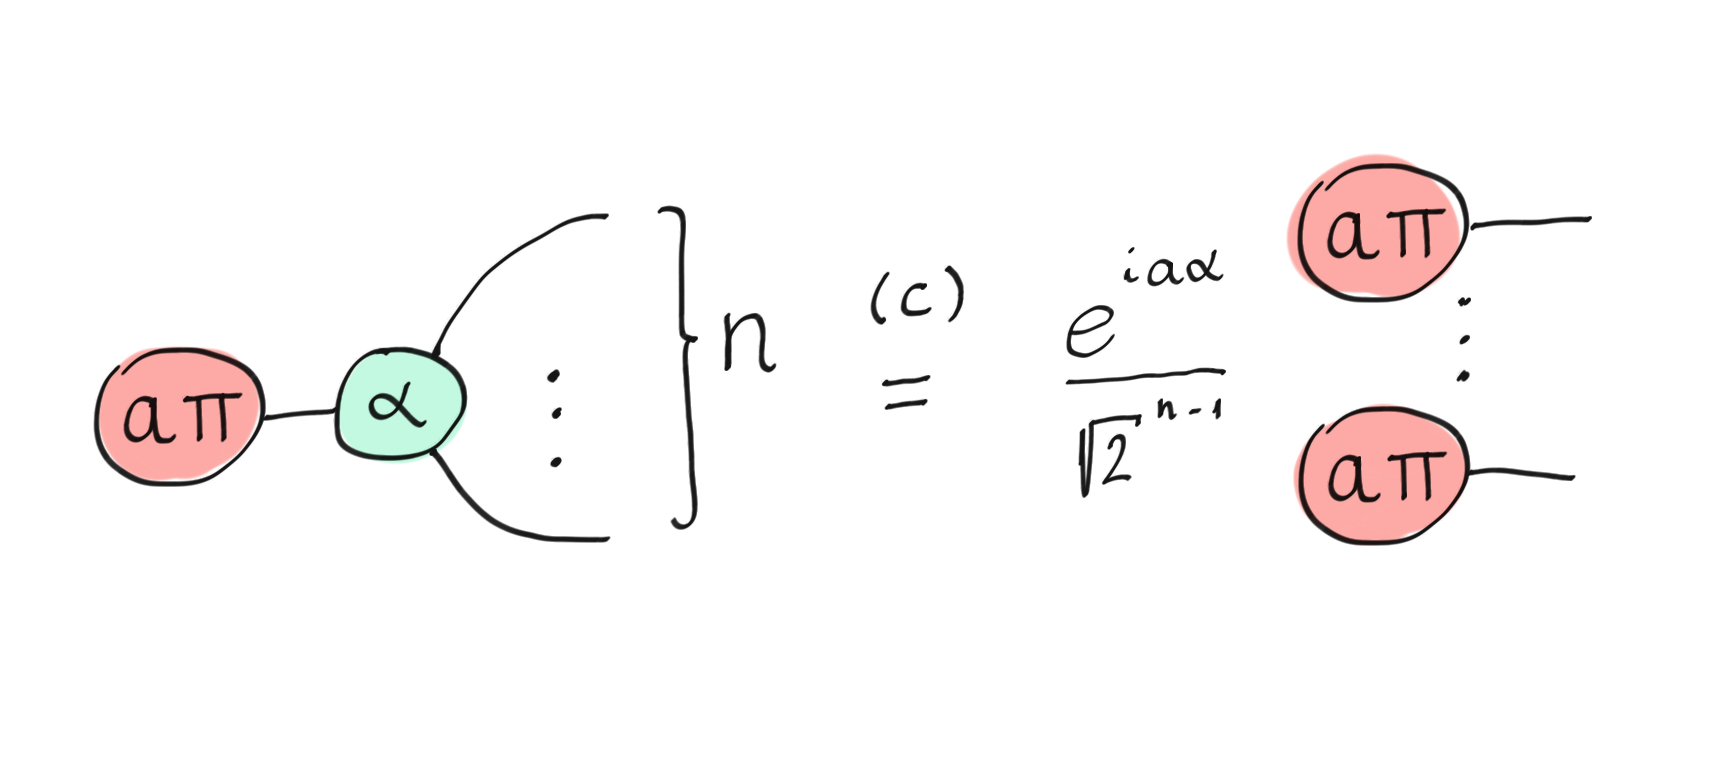 aπ α n (c) = e^{iaα} / √2^{n-1} aπ
aπ